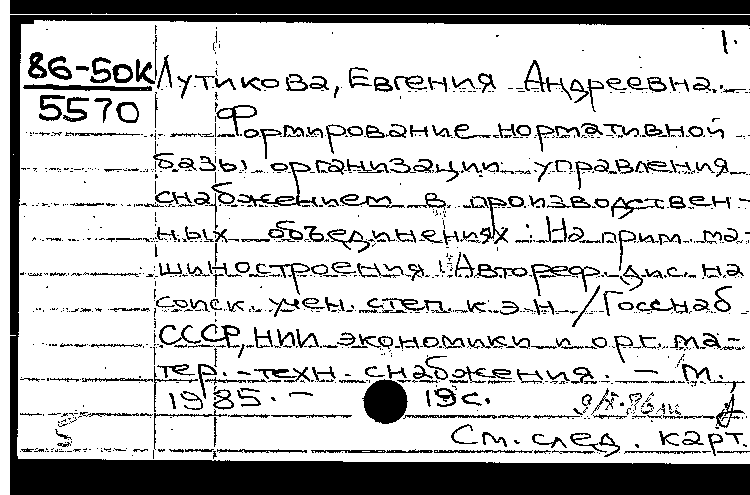 1.
86-50к Лутикова, Евгения Андреевна.
5570 Формирование нормативной
базы организации управления
снабжением в производствен-
ных объединениях: На прим ма-
шиностроения: Автореф. дис. на
соиск. учен. степ к э н / Госснаб
СССР, НИИ экономики и орг. ма-
тер.-техн. снабжения. – М.,
1985. – 19 с.
5
См. след. карт.